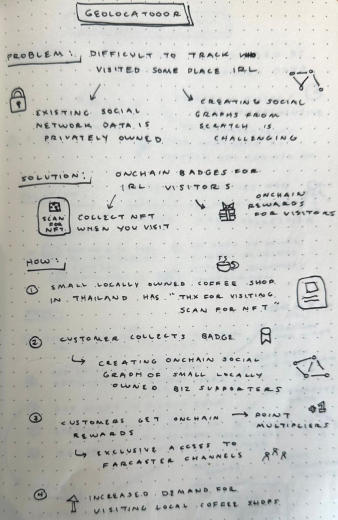 GEOLOCATOOOR
PROBLEM: DIFFICULT TO TRACK WHO
VISITED SOME PLACE IRL.
EXISTING SOCIAL
NETWORK DATA IS
PRIVATELY OWNED
CREATING SOCIAL
GRAPHS FROM
SCRATCH IS
CHALLENGING
SOLUTION: ONCHAIN BADGES FOR
IRL VISITORS
SCAN
FOR
NFT
COLLECT NFT
WHEN YOU VISIT
ONCHAIN
REWARDS
FOR VISITORS
HOW:
① SMALL LOCALLY OWNED COFFEE SHOP
IN THAILAND HAS "THX FOR VISITING
SCAN FOR NFT"
② CUSTOMER COLLECTS BADGE
CREATING ONCHAIN SOCIAL
GRAPH OF SMALL LOCALLY
OWNED BIZ SUPPORTERS
③ CUSTOMERS GET ONCHAIN → POINT
REWARDS MULTIPLIERS
EXCLUSIVE ACCESS TO
FARCASTER CHANNELS
④ INCREASED DEMAND FOR
VISITING LOCAL COFFEE SHOPS